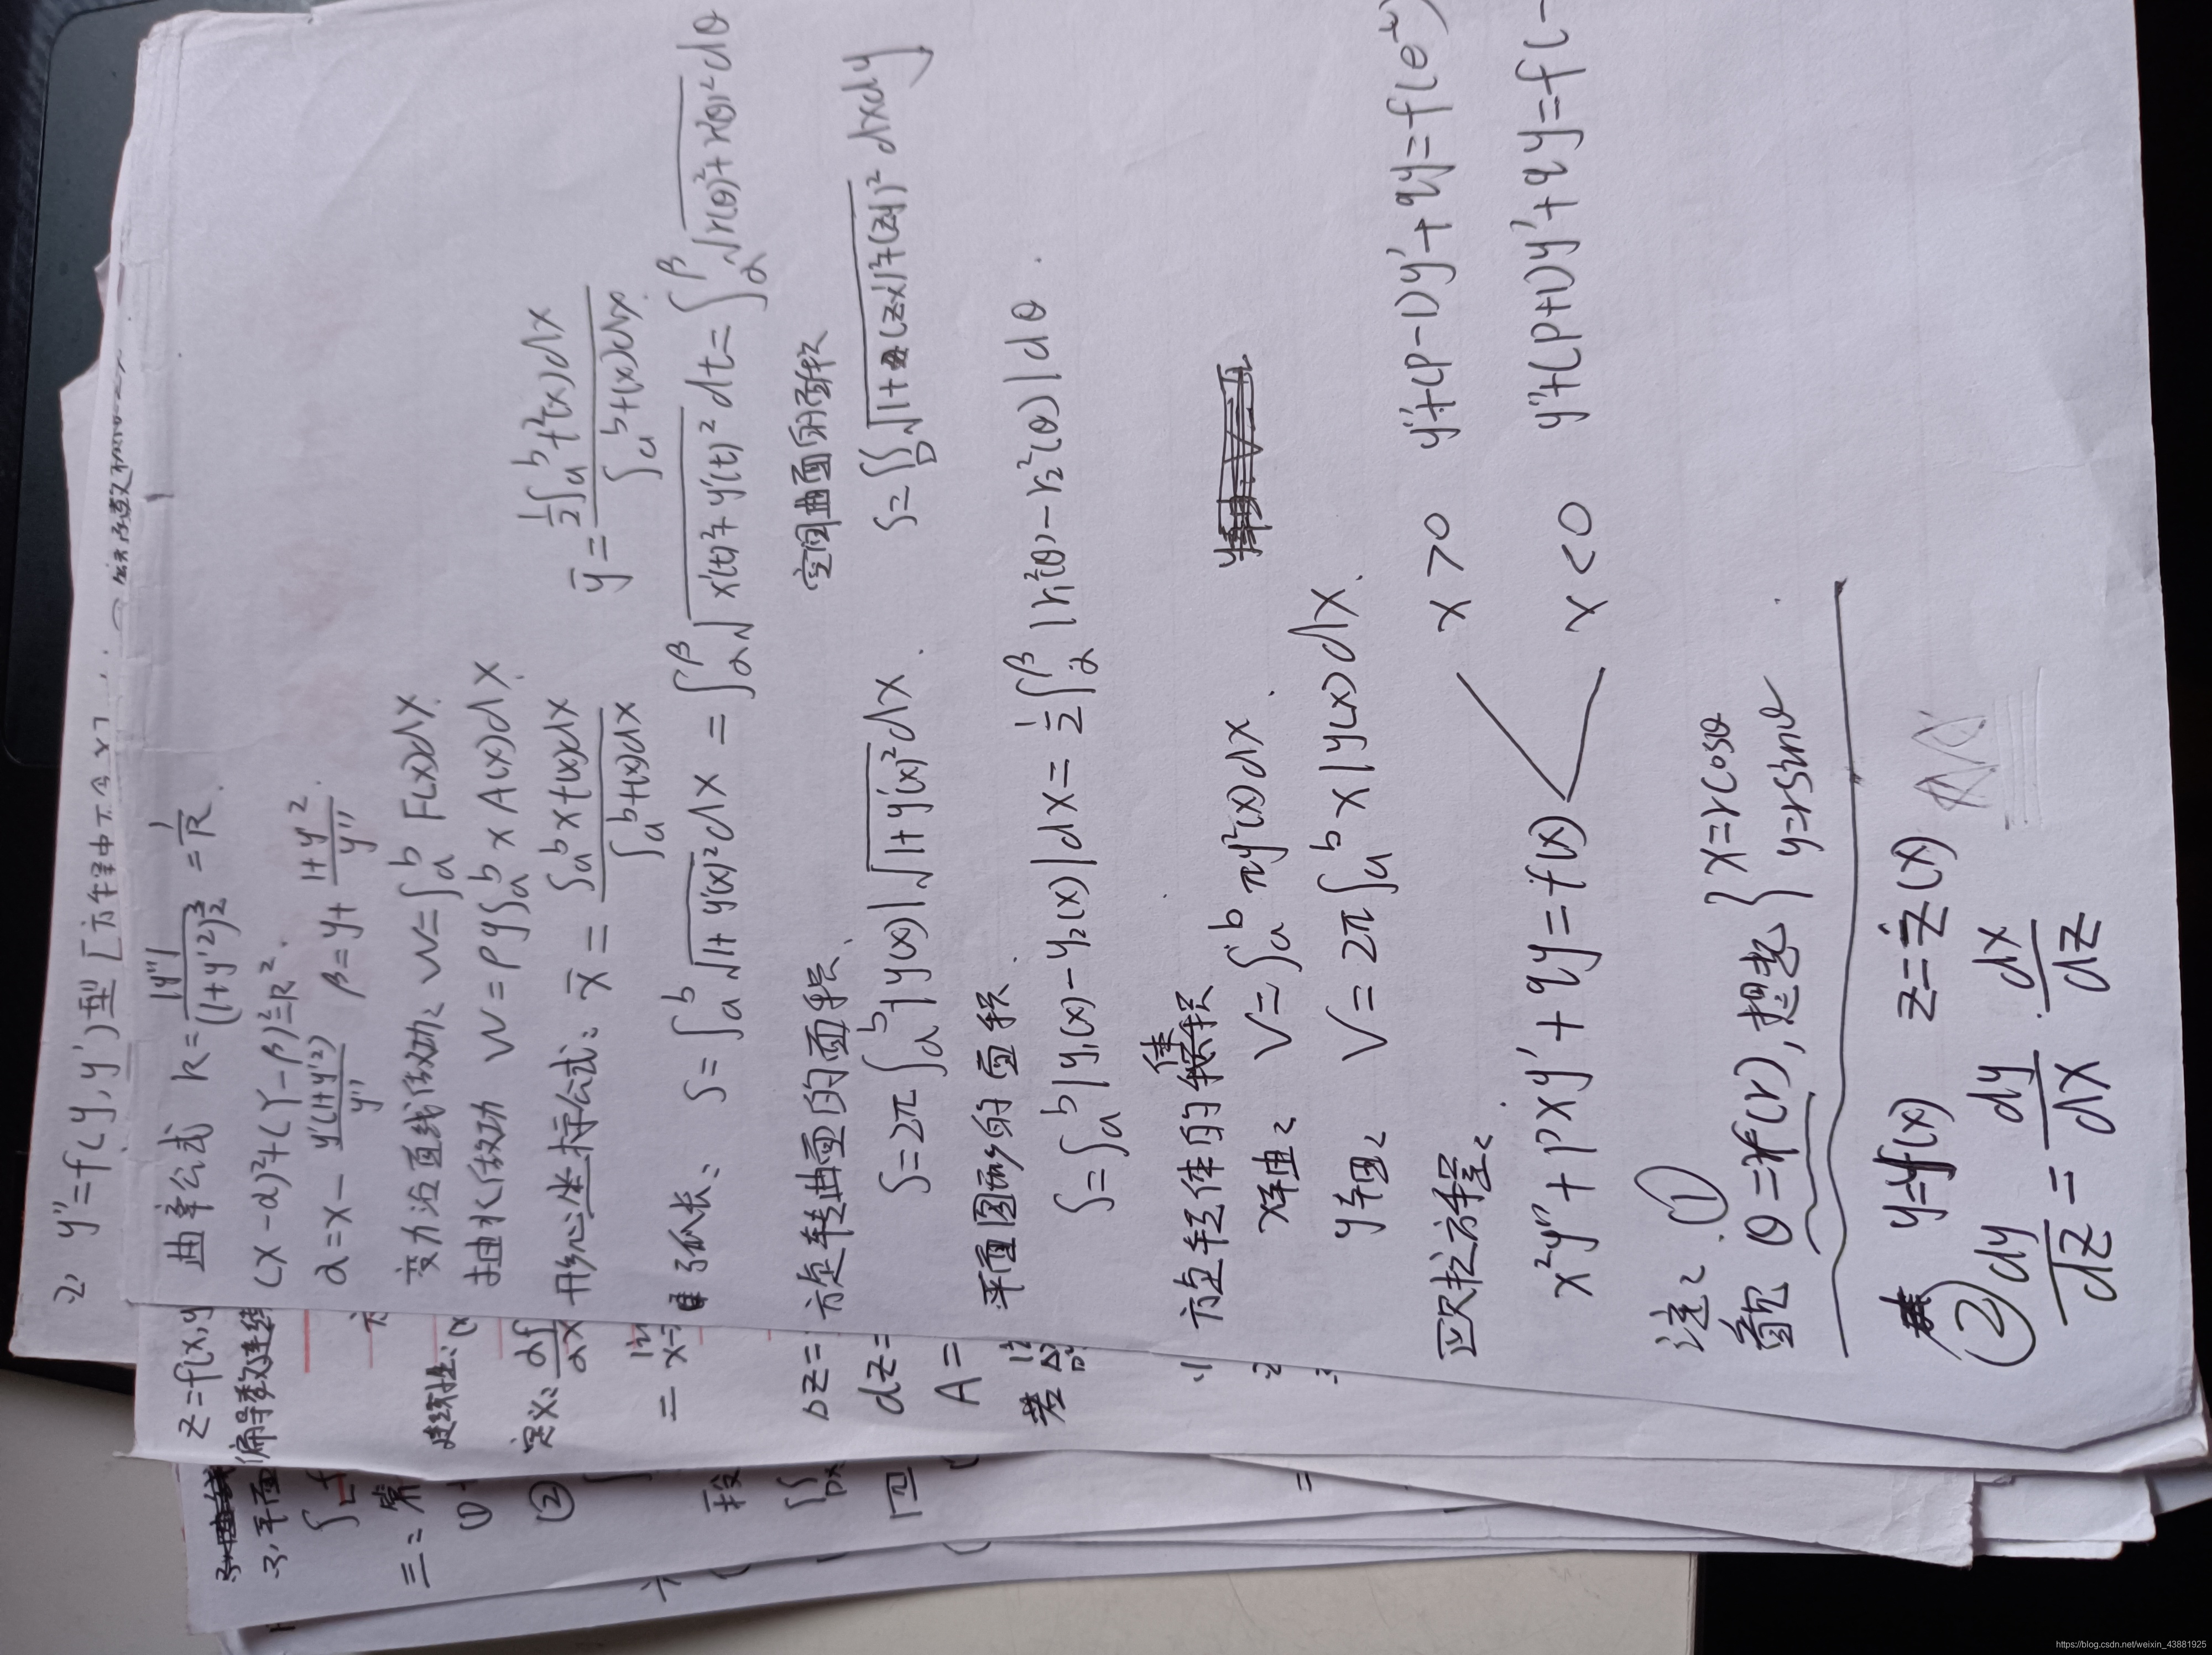 2) y''=f(y,y')型 [方程中不含x]
曲率公式 k=|y''|/(1+y'2)^(3/2) = 1/R
(x-α)²+(Y-β)²=R².
α=x-y'(1+y'2)/y'' β=y+(1+y'2)/y''.
变力沿直线做功: W=∫_a^b F(x)dx
抽水做功 W=ρg∫_a^b xA(x)dx
形心坐标公式: x̄=∫_a^b xf(x)dx/∫_a^b f(x)dx ȳ=½∫_a^b f²(x)dx/∫_a^b f(x)dx
弧长: S=∫_a^b √(1+y'(x)²)dx=∫_α^β √(x'(t)²+y'(t)²)dt=∫_α^β √(r(θ)²+r'(θ)²)dθ
旋转曲面的面积、 空间曲面的面积
S=2π∫_a^b |y(x)|√(1+y'(x)²)dx. S=∬_D √(1+(z'x)²+(z'y)²)dxdy
平面图形的面积.
S=∫_a^b |y₁(x)-y₂(x)|dx=½∫_α^β |r₁²(θ)-r₂²(θ)|dθ.
旋转体的体积
x轴: V=∫_a^b πy²(x)dx.
y轴: V=2π∫_a^b x|y(x)dx.
欧拉方程:
x²y''+pxy'+qy=f(x)
x>0 y''+(p-1)y'+qy=f(e^t)
x<0 y''+(p+1)y'+qy=f(-
注: ①
看见 θ=f(r), 想起 {x=rcosθ
y=rsinθ
② y=f(x) z=z(x)
dy/dz=dy/dx·dx/dz
z=f(x,y
3,平面
偏导数连续
连续性:
② 定义: ∂f/∂x
Δz=
dz=
A=
三: 第
①
https://blog.csdn.net/weixin_43881925